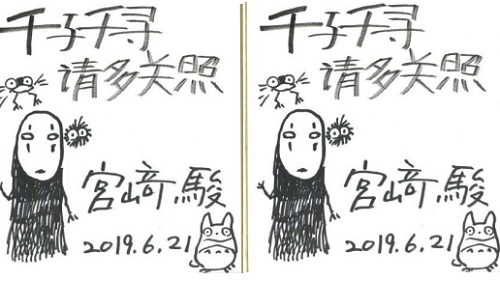 千与千寻
请多关照
宮﨑 駿
2019.6.21
千与千寻
请多关照
宮﨑 駿
2019.6.21